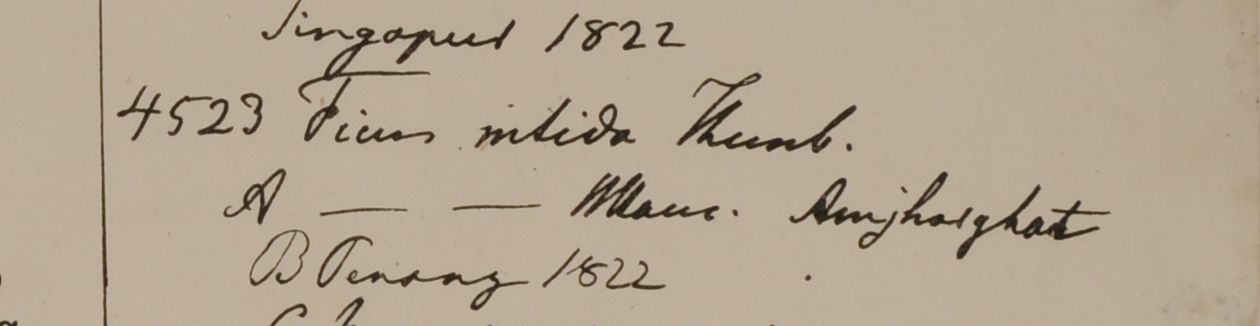 Singapur 1822
4523 Ficus nitida Thunb.
A — — Amjharghat
B Penang 1822